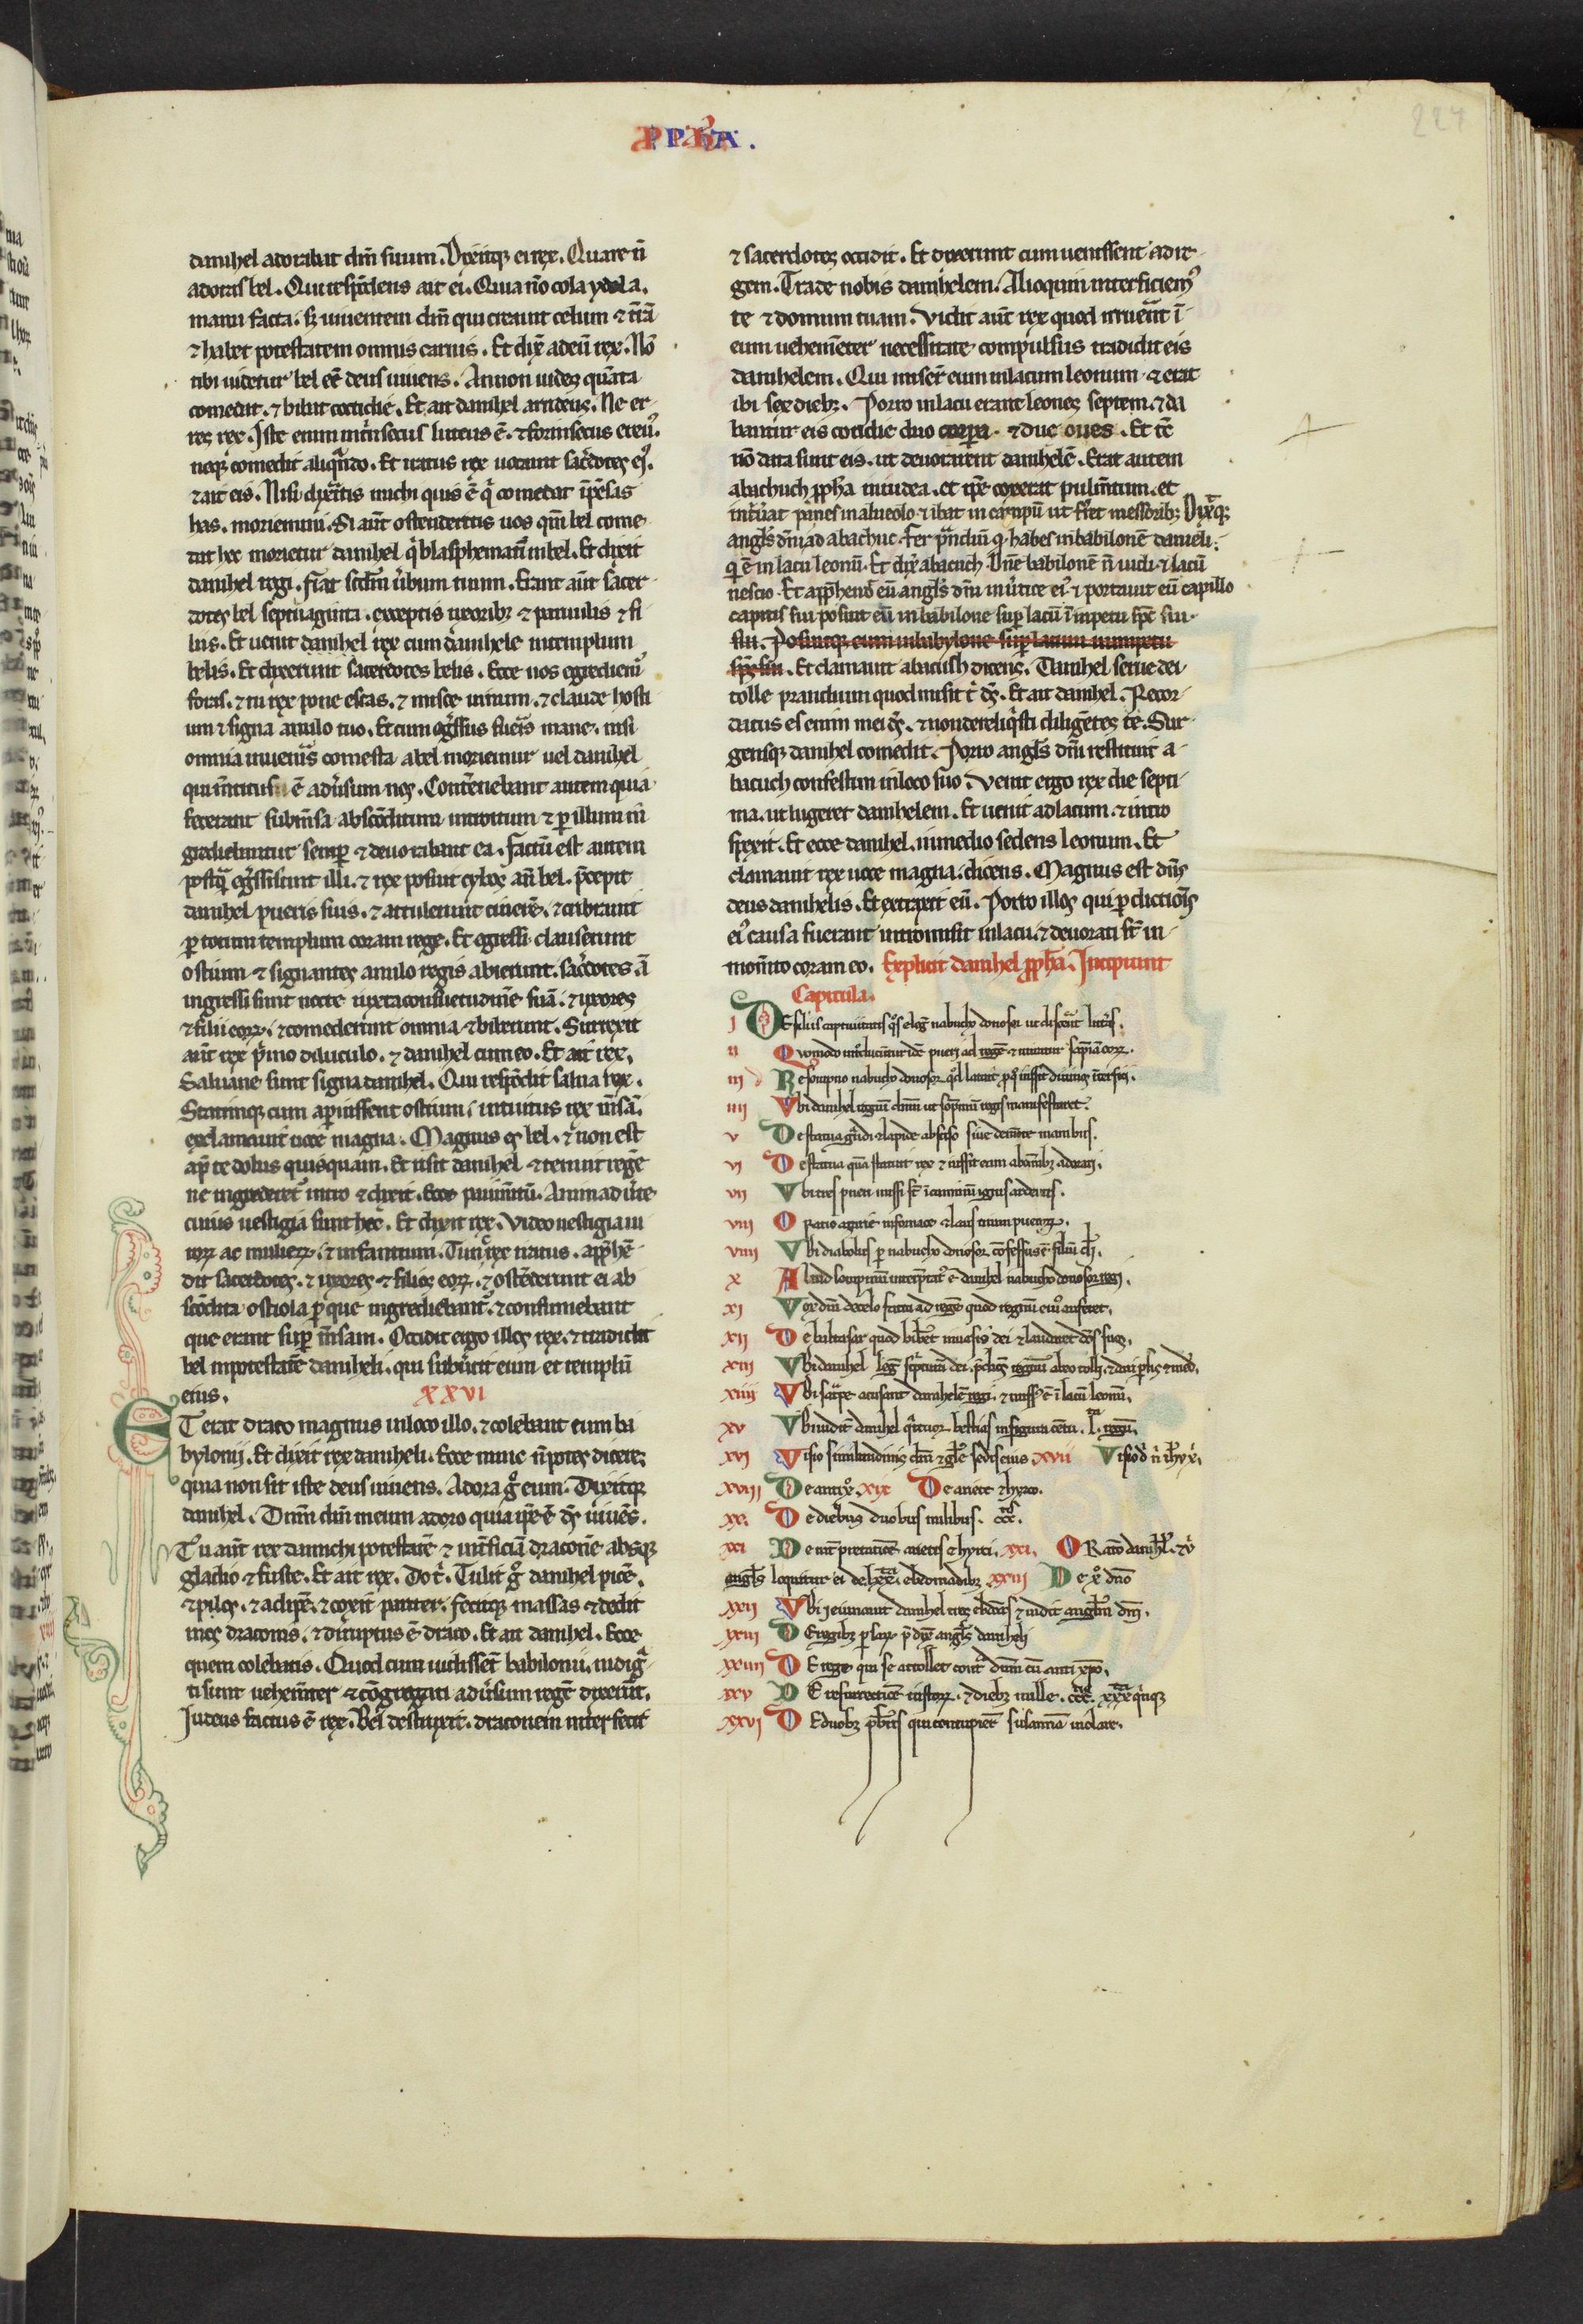 PP.hA.
224
danihel adorabat dm̄ suum. Dixitq; ei rex. Quare n̄
adoras bel. Qui respōdens ait ei. Quia nō colo ydola
manu facta. sȝ uiuentem dm̄ qui creauit celum ⁊ t̄rā
⁊ habet potestatem omnis carnis. Et dix̄ ad eū rex. Nō
tibi uidetur bel eē deus uiuens. An non uides quāta
comedat. ⁊ bibat cottidie. Et ait danihel arridens. Ne er
res rex. Iste enim int̄nsecus luteus ē. ⁊ forinsecus ereus.
neq; comedit aliqn̄do. Et iratus rex uocauit sac̄dotes ei9.
⁊ ait eis. Nisi dix̄itis michi quis ē q̄ comedat īpēsas
has. moriemini. Si aūt ostenderitis uos qm̄ bel come
dat hec morietur danihel q̄ blasphemauit in bel. Et dixit
danihel regi. fiat scd̄m u̇bum tuum. Erant aūt sacer
dotes bel septuaginta. exceptis uxoribȝ ⁊ paruulis ⁊ fi
liis. Et uenit danihel rex cum danihele in templum
belis. Et dixerunt sacerdotes belis. Ecce nos egrediem9
foras. ⁊ tu rex pone escas. ⁊ misce uinum. ⁊ claude hosti
um ⁊ signa anulo tuo. Et cum īgressus fueris mane. nisi
omnia inueneris comesta a bel moriemur uel danihel
qui mentitus ē adu̇sum nos. Contēnebant autem quia
fecerant sub m̄sa absconditum introitum ⁊ p̱ illum in
grediebantur semp̱ ⁊ deuorabant ea. factū est autem
postq̄ egressi sunt illi. ⁊ rex posuit cybos an̄ bel. p̄cepit
danihel pueris suis. ⁊ attulerunt cinerē. ⁊ cribrauit
p̱ totum templum coram rege. Et egressi clauserunt
ostium ⁊ signantes anulo regis abierunt. sac̄dotes ā
ingressi sunt nocte iuxta consuetudinē suā. ⁊ uxores
⁊ filii eoꝝ. ⁊ comederunt omnia ⁊ biberunt. Surrexit
aūt rex p̄mo diluculo. ⁊ danihel cum eo. Et ait rex.
Saluane sunt signa danihel. Qui respōdit salua rex.
Statimq; cum ap̱uissent ostium. intuitus rex m̄sā.
exclamauit uoce magna. Magnus es bel. ⁊ non est
ap̱ te dolus quisquam. Et risit danihel ⁊ tenuit regē
ne ingrederet᷑ intro ⁊ dixit. Ecce pauim̄tū. Animadu̇te
cuius uestigia sunt hec. Et dixit rex. Video uestigia ui
roꝝ ac mulieꝝ. ⁊ infantium. Tunc rex iratus. app̱hē
dit sacerdotes. ⁊ uxores ⁊ filios eoꝝ. ⁊ ostēderunt ei ab
scōdita ostiola p̱ que ingrediebant᷑. ⁊ consumebant
que erant sup̱ m̄sam. Occidit ergo illos rex. ⁊ tradidit
bel in potestatē danihelis. qui subu̇tit eum et templū
eius. XXVI
ET erat draco magnus in loco illo. ⁊ colebant eum ba
bylonii. Et dixit rex daniheli. Ecce nunc n̄ potes dicere
quia non sit iste deus uiuens. Adora g̊ eum. Dixitq;
danihel. Dnm̄ dm̄ meum adoro quia ip̄e ē dȩ uiuēs.
Tu aūt rex da michi potestatē ⁊ int̄ficiā draconē absq;
gladio ⁊ fuste. Et ait rex. Do t̄. Tulit g̊ danihel picē.
⁊ pilos. ⁊ adipē. ⁊ coxit pariter. fecitq; massas ⁊ dedit
in os draconis. ⁊ diruptus ē draco. Et ait danihel. Ecce
quem colebatis. Quod cum audissēt babilonii. indig̃
ti sunt uehem̄ter ⁊ cōgregati adu̇sum regē dixerūt.
Iudeus factus ē rex. Bel destruxit. draconem interfecit
⁊ sacerdotes occidit. Et dixerunt cum uenissent ad re
gem. Trade nobis danihelem. Alioquin interficiem9
te ⁊ domum tuam. Vidit aūt rex quod irruerāt ī
eum uehemēter necessitate compulsus tradidit eis
danihelem. Qui miserūt eum in lacum leonum. ⁊ erat
ibi sex diebȝ. Porro in lacu erant leones septem. ⁊ da
bantur eis cotidie duo corpora. ⁊ due oues. Et tē
nō data sunt eis. ut deuorarent danihelē. Erat autem
abachuch pp̱ha in iudea. et ip̄e coxerat pulm̄tum. et
int̄uerat panes in alueolo ⁊ ibat in campū ut ferret messoribȝ Dixitq;
angl̄s dn̄i ad abachuc. fer p̄ndiū q̄ habes in babilonē danieli.
q̄ ē in lacu leonū. Et dix̄ abacuch. Dn̄e babilonē n̄ uidi. ⁊ lacū
nescio. Et app̱hend̄ eū angl̄s dn̄i in u̇tice ei9 ⁊ portauit eū capillo
capitis sui posuit eū in babilone sup̱ lacū ī inpetu sp̄c sui.
sui. Posuitq; eum in babylone sup̱ lacum in impetu
sp̄s sui. Et clamauit abacuch dicens. Danihel serue dei
tolle prandium quod misit t̄ dȩ. Et ait danihel. Recor
datus es enim mei dȩ. ⁊ non dereliq̄sti diligētes te. Sur
gensq; danihel comedit. Porro angl̄s dn̄i restituit a
bacuch confestim in loco suo. Venit ergo rex die septi
ma. ut lugeret danihelem. Et uenit ad lacum. ⁊ intro
spexit. Et ecce danihel. in medio sedens leonum. Et
clamauit rex uoce magna. dicens. Magnus est dn̄s
deus danihelis. Et extraxit eū. Porro illos qui p̱ditiōis
ei9 causa fuerant intromisit in lacū. ⁊ deuorati st̄ in
mom̄to coram eo. Explicit danihel pp̱ha. Incipiunt
Capitula.
I DE filiis captiuitatis q̄s eleg̃ nabuchodonosor ut discerēt litt̄as.
II Quomodo int̄ducuntur idē pueri ad regē ⁊ miratur sap̄iā eoꝝ.
III De sompno nabuchodonosor q̄d latuit
IIII Vbi danihel regnū ut sōpniū regis manifestaret.
V De statua g̃ndi ⁊ lapide absciso sine demōte manibus.
VI De statua quā statuit rex ⁊ iussit eum ab omibȝ adorari.
VII Vbi tres pueri missi st̄ ī caminū ignis ardentis.
VIII Oratio azarie in fornace ⁊ laus trium pueroꝝ.
VIIII Vbi diabolus p̱ nabuchodonosor cōfessus ē filiū di.
X Aliud sompniū interp̄tat᷑ ē danihel nabuchodonosor regi.
XI Vox dn̄i de celo facta ad regē quod regnū ei9 auferet.
XII De baltasar quod biberet in uasis dei ⁊ laudaret deos suos.
XIII Vbi danihel leg̃ sc̄pturā dei.
XIIII Vbi sat̃pe accusant danihelē regi. ⁊ miss9 ē ī lacū leonū.
XV Vbi uidit danihel q̃tuor bestias in figura
XVI Visio similitudinis dn̄i ⁊ gl̄e sedis eius XVII Visio
XVIII De antix̄. XIX De ariete ⁊ hyrco.
XX. De diebus duobus milibus. ccc.
XXI De int̄pretatiōe arietis ⁊ hyrci. XXI. ORatio danihel. ⁊ u
angl̄s loquitur ei de lxx. ebdomadibȝ XXIII De x̄o dn̄o
XXII Vbi ieiunauit danihel tres ebd̄as ⁊ uidit anglm̄ dn̄i.
XXIII DE regibȝ p̱saꝝ p̄dix̄ angl̄s daniheli
XXIIII DE rege qui se attollet cont̃ dnm̄ cū anti xp̄o.
XXV DE resurrectiōe iustoꝝ. ⁊ diebȝ mille. ccc. xxx q̄nq;
XXVI DE duobȝ p̄bris qui concupierēt susannā uiolare.